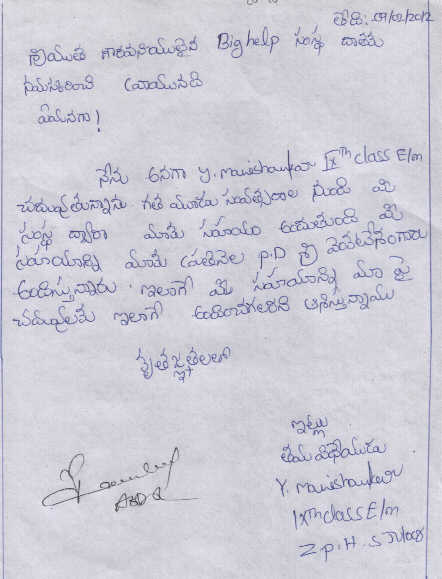 తేది: 09/02/2012
శ్రీయుత గౌరవనీయులైన Big help సంస్థ దాతకు
నమస్కరించి వ్రాయునది
ఏమనగా!
నేను అనగా Y. manishankar IXth class E/m
చదువుతున్నాను గత మూడు సంవత్సరాల నుండి మీ
సంస్థ ద్వారా మాకు సహాయం అందుతుంది మీ
సహాయాన్ని మాకు ప్రతినెల P.D శ్రీ గారు
అందిస్తున్నారు. ఇలాగే మీ సహాయాన్ని మా పై
చదువులకు ఇలాగే అందించగలరని ఆశిస్తున్నాము
కృతజ్ఞతలతో
ఇట్లు
తమ విధేయుడు
Y. manishankar
IXth class E/m
Z.P.H.S